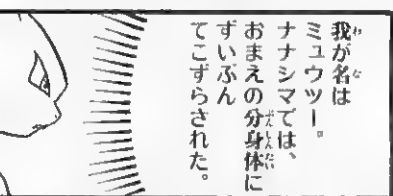 我が名は
ミュウツー。
ナナシマでは、
おまえの分身体に
ずいぶん
てこずらされた。